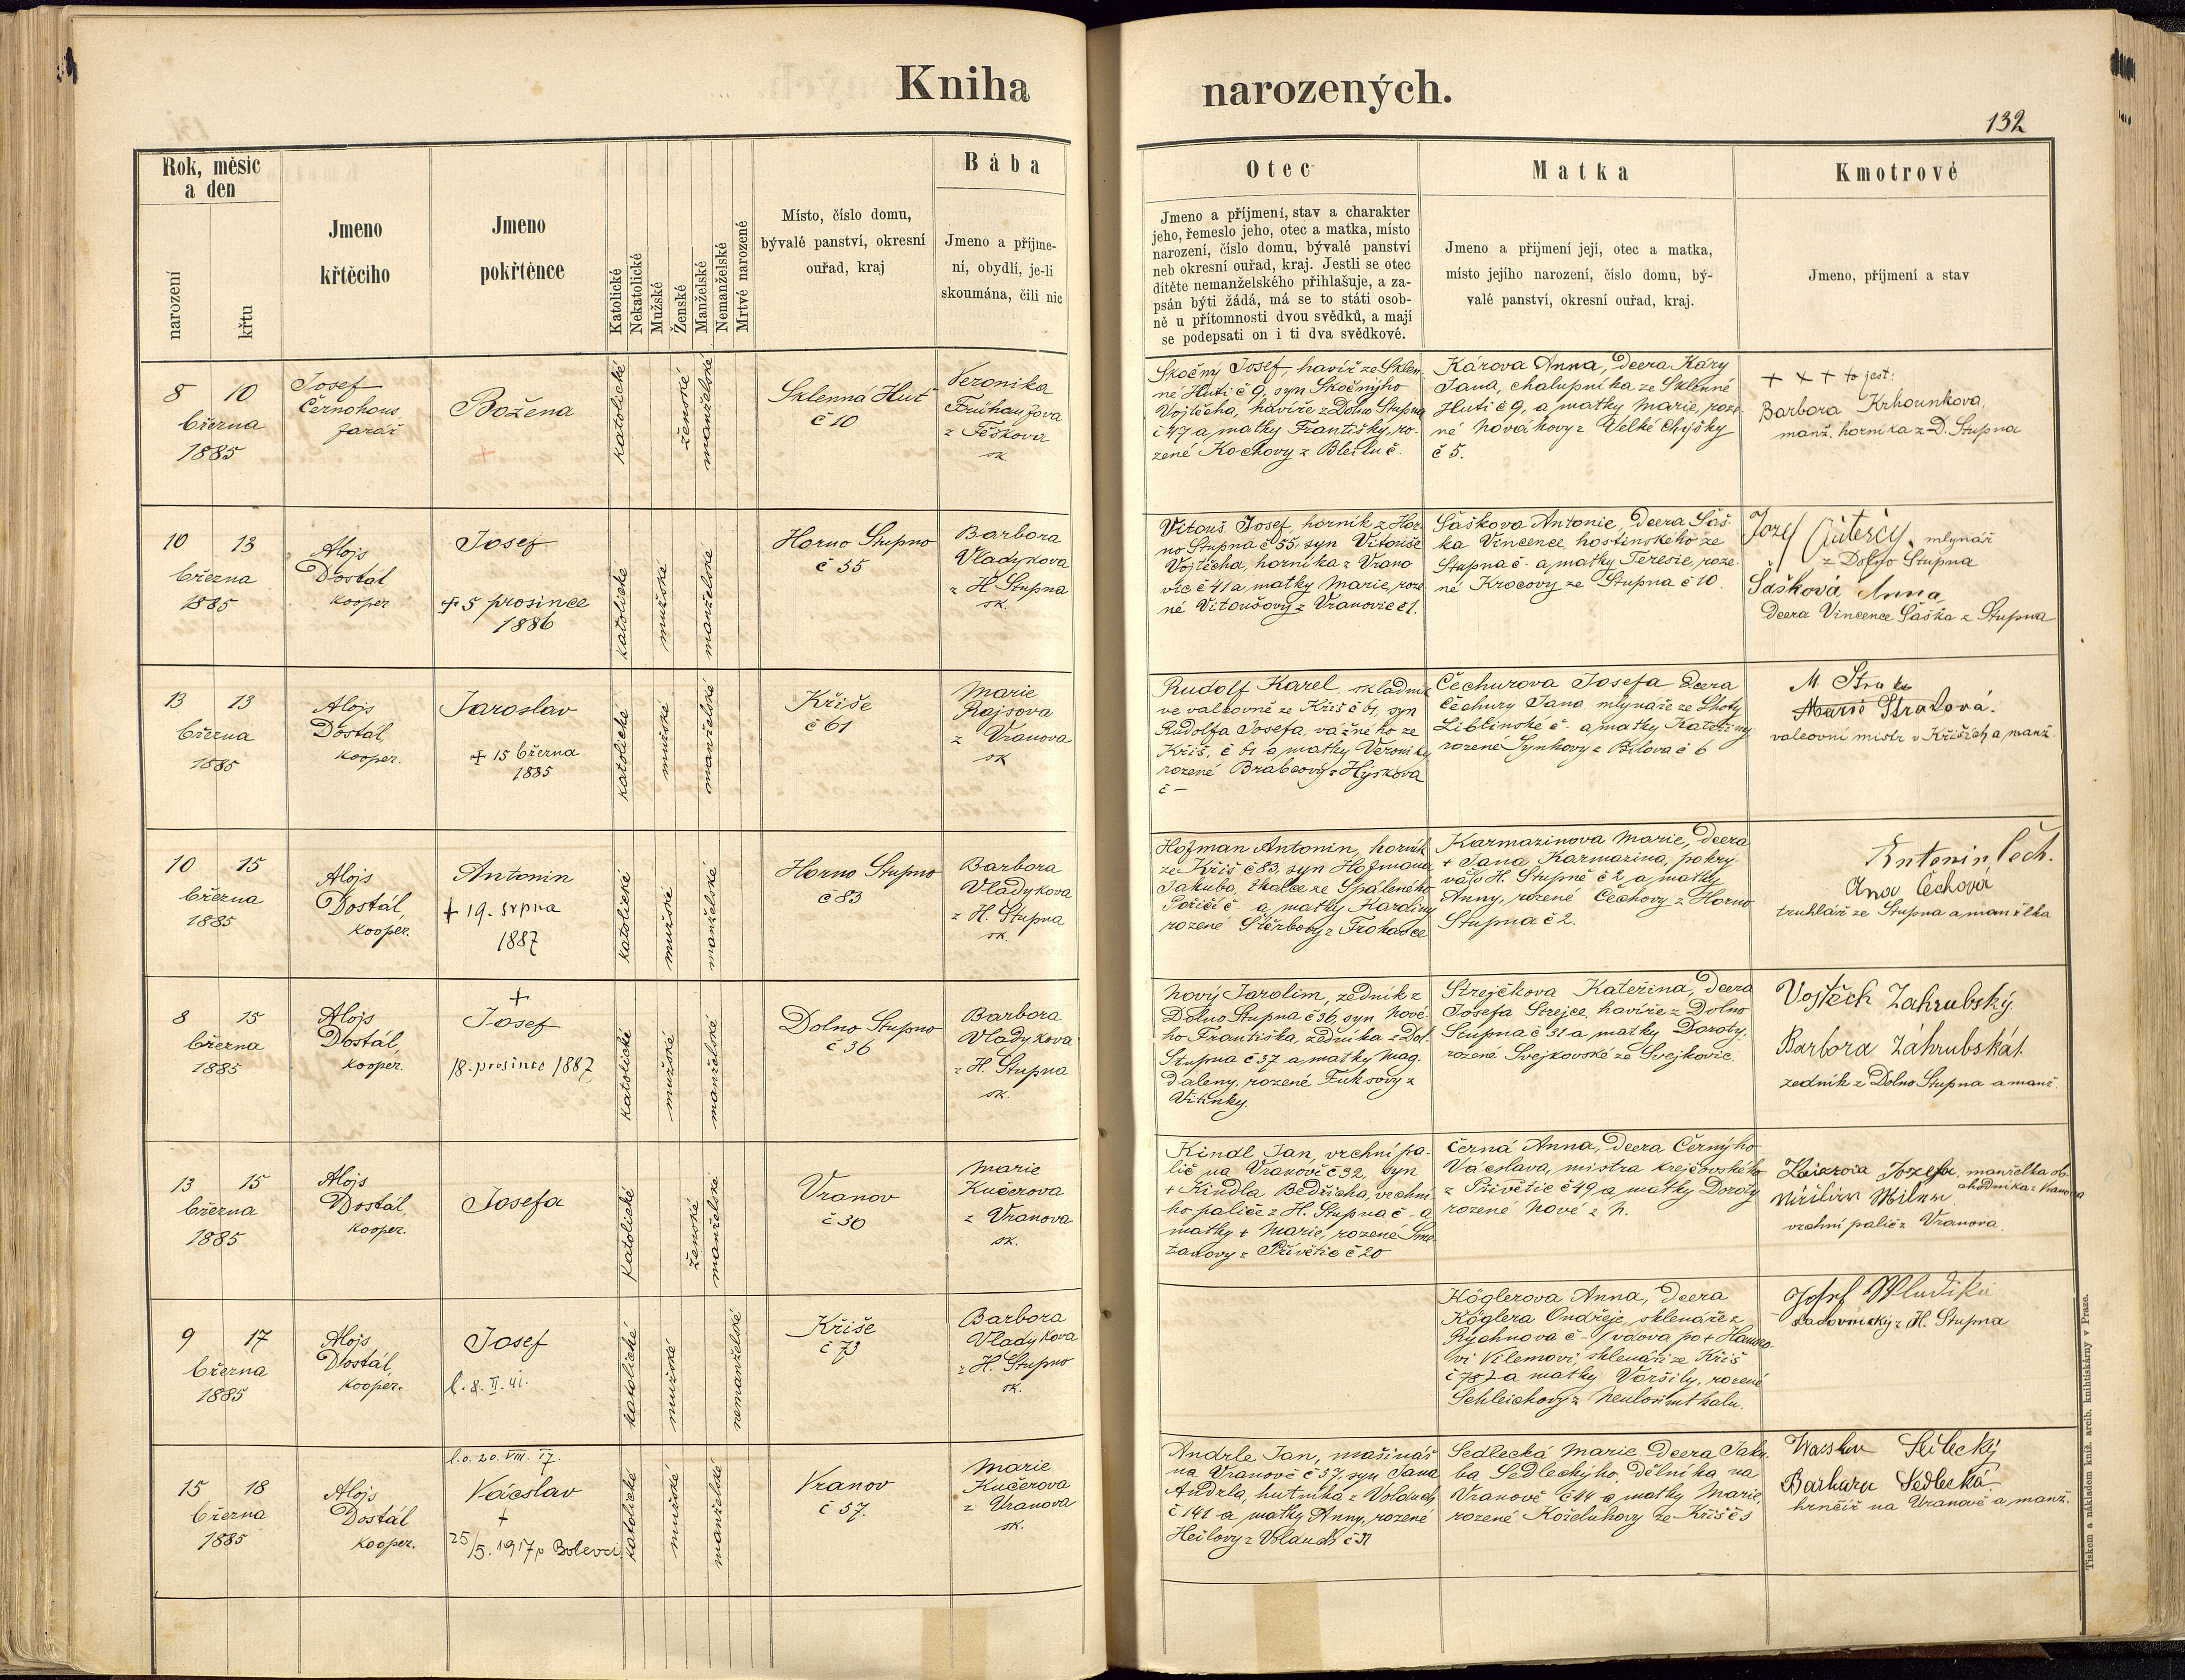 Kniha narozených.
132
Rok, měsíc
a den
narození
křtu
Jmeno
křtěcího
Jmeno
pokřtěnce
Katolické
Nekatolické
Mužské
Ženské
Manželské
Nemanželské
Mrtvě narozené
Místo, číslo domu,
bývalé panství, okresní
ouřad, kraj
Bába
Jmeno a příjme-
ní, obydlí, je-li
skoumána, čili nic
Otec
Jmeno a příjmení, stav a charakter
jeho, řemeslo jeho, otec a matka, místo
narození, číslo domu, bývalé panství
neb okresní ouřad, kraj. Jestli se otec
dítěte nemanželského přihlašuje, a za-
psán býti žádá, má se to státi osob-
ně u přítomnosti dvou svědků, a mají
se podepsati on i ti dva svědkové.
Matka
Jmeno a přijmení její, otec a matka,
místo jejího narození, číslo domu, bý-
valé panství, okresní ouřad, kraj.
Kmotrové
Jmeno, příjmení a stav
8 10
března
1885
Josef
Černohous,
farář
Božena
katolické
ženské
manželské
Sklenná Huť
č 10
Veronika
z Těškova
sk.
Skočný Josef, havíř ze Sklen-
né Huti č 9, syn Skočnýho
Vojtěcha, havíře z Dolno Stupna
č 47 a matky Františky, ro-
zené Kochovy z
Károva Anna, dcera Káry
Jana, chalupníka ze Sklenné
Huti č 9, a matky Marie, roze-
né Novákovy z Velké Chyšky
č 5.
+ + + to jest:
Barbora Krhounkova,
manž. horníka z D. Stupna
10 13
března
1885
Alojs
Dostál
kooper
Josef
+ 5 prosince
1886
katolické
mužské
manželské
Horno Stupno
č 55
Barbora
Vladykova
z H Stupna
sk.
Vitouš Josef, horník z Hor-
no Stupna č 55, syn Vitouše
Vojtěcha, horníka z Vrano
vic č 41 a matky Marie, roze-
né Vitoušovy z Vranovic č 1.
Šaškova Antonie, dcera Šaš-
ka Vincence, hostinského ze
Stupna č - a matky Teresie, roze-
né Krocovy ze Stupna č 10
Jozef
mlynář
z Dolno Stupna
Šašková Anna,
dcera Vincence Šaška z Stupna
13 13
března
1885
Alojs
Dostál,
kooper.
Jaroslav
+ 15 března
1885
katolické
mužské
manželské
Kříše
č 61
Marie
Rajsova
z Vranova
sk
Rudolf Karel, skladník
ve valcovně ze Kříš č 61, syn
Rudolfa Josefa, vážného ze
Kříš, č 61 a matky Veroniky
rozené Brabcovy z Hýskova
č -
Čechurova Josefa dcera
Čechury Jana mlynáře ze Lhoty
Liblinské č - a matky Kateřiny
rozené Synkovy z Bílova č 6
M
Marie Stratová.
valcovní mistr v Kříších a manž.
10 15
března
1885
Alojs
Dostál,
kooper.
Antonin
+ 19. srpna
1887
katolické
mužské
manželské
Horno Stupno
č 83
Barbora
Vladykova
z H. Stupna
sk.
Hofman Antonin, horník
ze Kříš č 83, syn Hofmana
Jakuba, tkalce ze Spáleného
Poříčí č a matky Karoliny
rozené Štěrbovy z
Karmazinova Marie, dcera
+ Jana Karmazina, pokrý-
vače v H. Stupně č 2 a matky
Anny, rozené Čechovy z Horno
Stupna č 2.
Antonin Čech.
Ana Čechová
truhlář ze Stupna a manželka
8 15
března
1885
Alojs
Dostál,
kooper.
+
Josef
18. prosince 1887
katolické
mužské
manželské
Dolno Stupno
č 36
Barbora
Vladykova
z H. Stupna
sk.
Nový Jarolim, zedník z
Dolno Stupna č 36, syn Nové-
ho Františka, zedníka z Dol.
Stupna č 37 a matky Mag-
daleny, rozené Fuksovy z
Vitinky.
Strejčkova Kateřina, dcera
Josefa Strejce, havíře z Dolno
Stupna č 31 a matky Doroty,
rozené Svejkovské ze Svejkovic.
Vojtěch Zahrubský.
Barbora Záhrubská
zedník z Dolno Stupna a manž.
13 15
března
1885
Alojs
Dostál,
kooper.
Josefa
katolické
ženské
manželské
Vranov
č 30
Marie
Kučerova
z Vranova
sk.
Kindl Jan, vrchní pa-
lič na Vranově č 32, syn
+ Kindla Bedřicha, vrchní-
ho paliče z H. Stupna č - a
matky + Marie, rozené Sme-
tanovy z Přívětic č 20
Černá Anna, dcera Černýho
Václava, mistra krejčovského
z Přívětic č 49 a matky Doroty
rozené Nové z
Josefa, manželka ob-
chodníka z Vranova
vrchní palič z Vranova.
9 17
března
1885
Alojs
Dostál,
kooper.
Josef
l. 8. II. 41.
katolické
mužské
nemanželské
Kříše
č 73
Barbora
Vladykova
z H. Stupno
sk.
Köglerova Anna, dcera
Köglera Ondřeje, sklenáře z
Rychnova č - (vdova po +
vi Vilemovi, sklenáři ze Kříš
č 78) a matky Voršily, rozené
Schleichovy z
Josef
z H. Stupna
15 18
března
1885
Alojs
Dostál
kooper.
l. o. 20. VIII. 17.
Václav
+
25/5. 1917 v Bolevci
katolické
mužské
manželské
Vranov
č 57.
Marie
Kučerova
z Vranova
sk.
Andrle Jan, mašinář
na Vranově č 57, syn Jana
Andrla, hutníka z Volduch
č 141 a matky Anny, rozené
Heilovy z Volduch č 31
Sedlecká Marie, dcera Jaku-
ba Sedleckýho, dělníka na
Vranově č 44 a matky Marie,
rozené Koželuhovy ze Kříš č 5
Sedlecký
Barbara Sedlecká.
hrnčíř na Vranově a manž.
Tiskem a nákladem kníž. arcib. knihtiskárny v Praze.